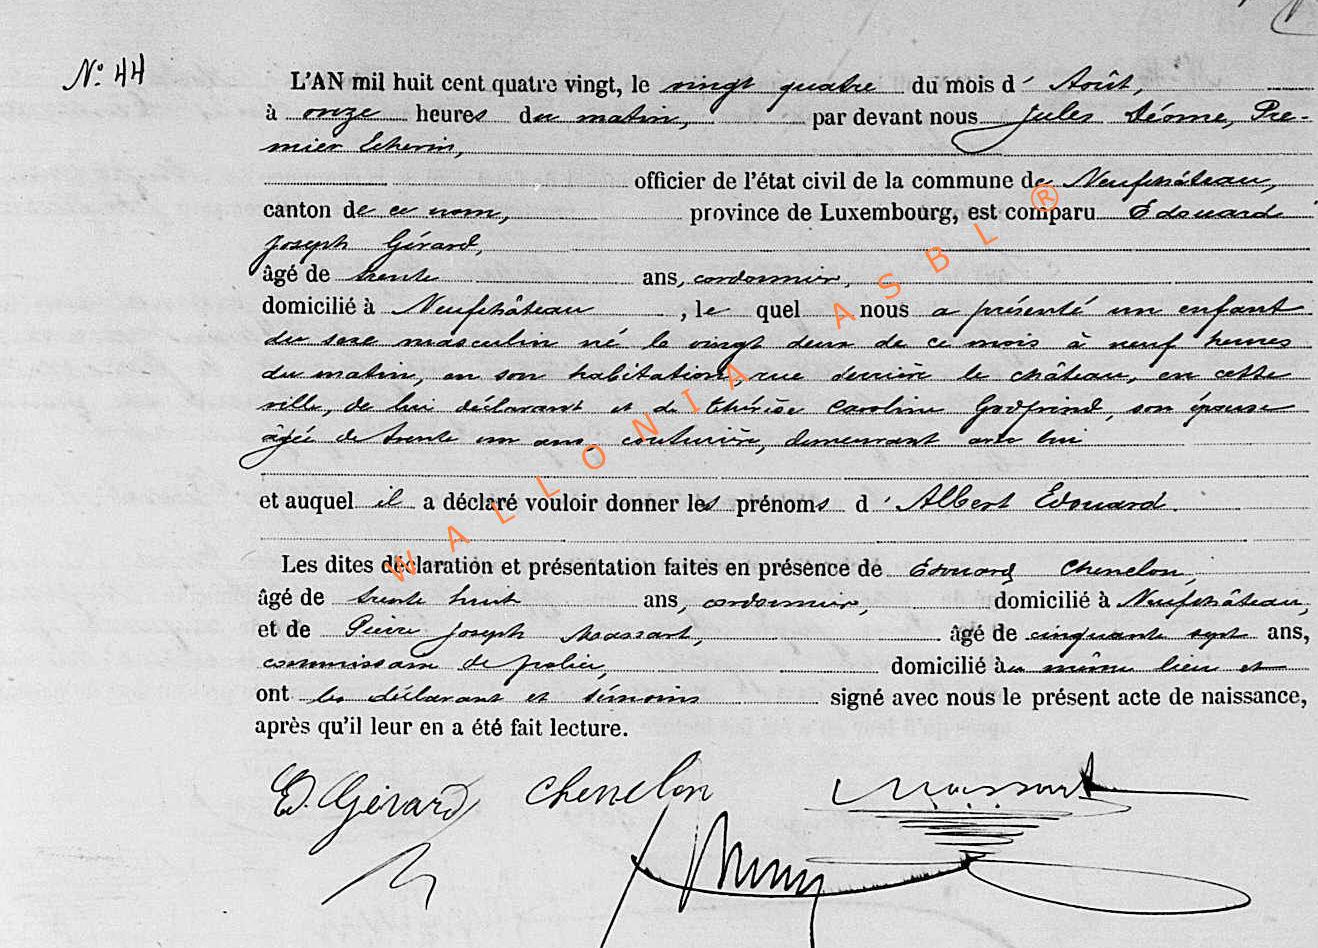 N° 44
L'AN mil huit cent quatre vingt, le vingt quatre du mois d' Août,
à onze heures du matin, par devant nous Jules Déome, Pre-
mier Echevin,
officier de l'état civil de la commune de Neufchâteau,
canton de ce nom, province de Luxembourg, est comparu Edouard
Joseph Gérard,
âgé de trente ans, cordonnier,
domicilié à Neufchâteau, le quel nous a présenté un enfant
du sexe masculin né le vingt deux de ce mois à neuf heures
du matin, en son habitation, rue derrière le château, en cette
ville, de lui déclarant et de Thérèse Caroline Godfrind, son épouse
âgée de trente un ans, couturière, demeurant avec lui
et auquel il a déclaré vouloir donner les prénoms d' Albert Edouard.
Les dites déclaration et présentation faites en présence de Edouard Chenelon,
âgé de trente huit ans, cordonnier, domicilié à Neufchâteau,
et de Pierre Joseph Massart, âgé de cinquante sept ans,
commissaire de police, domicilié au même lieu et
ont les déclarant et témoins signé avec nous le présent acte de naissance,
après qu'il leur en a été fait lecture.
E. Gérard Chenelon Massart
WALLONIA ASBL ®